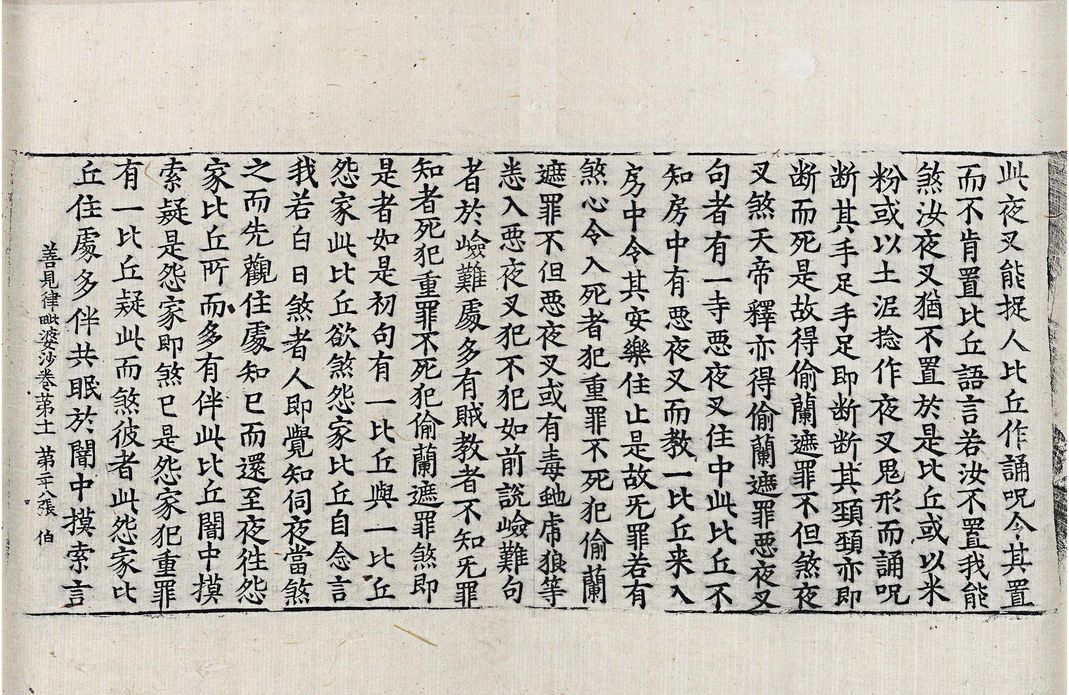 此夜叉能捉人比丘作誦呪令其置
而不肯置比丘語言若汝不置我能
煞汝夜叉猶不置於是比丘或以米
粉或以土泥捻作夜叉鬼形而誦呪
断其手足手足即断断其頸頸亦即
断而死是故得偷蘭遮罪不但煞夜
叉煞天帝釋亦得偷蘭遮罪悪夜叉
句者有一寺悪夜叉住中此比丘不
知房中有悪夜叉而教一比丘来入
房中令其安樂住止是故无罪若有
煞心令入死者犯重罪不死犯偷蘭
遮罪不但悪夜叉或有毒虵虎狼等
悉入悪夜叉犯不犯如前說嶮難句
者於嶮難處多有賊教者不知无罪
知者死犯重罪不死犯偷蘭遮罪煞即
是者如是初句有一比丘與一比丘
怨家此比丘欲煞怨家比丘自念言
我若白日煞者人即覺知伺夜當煞
之而先觀住處知已而還至夜往怨
家比丘所而多有伴此比丘闇中摸
索疑是怨家即煞已是怨家犯重罪
有一比丘疑此而煞彼者此怨家比
丘住處多伴共眠於闇中摸索言
善見律毗婆沙卷第十一 第二十八張 伯